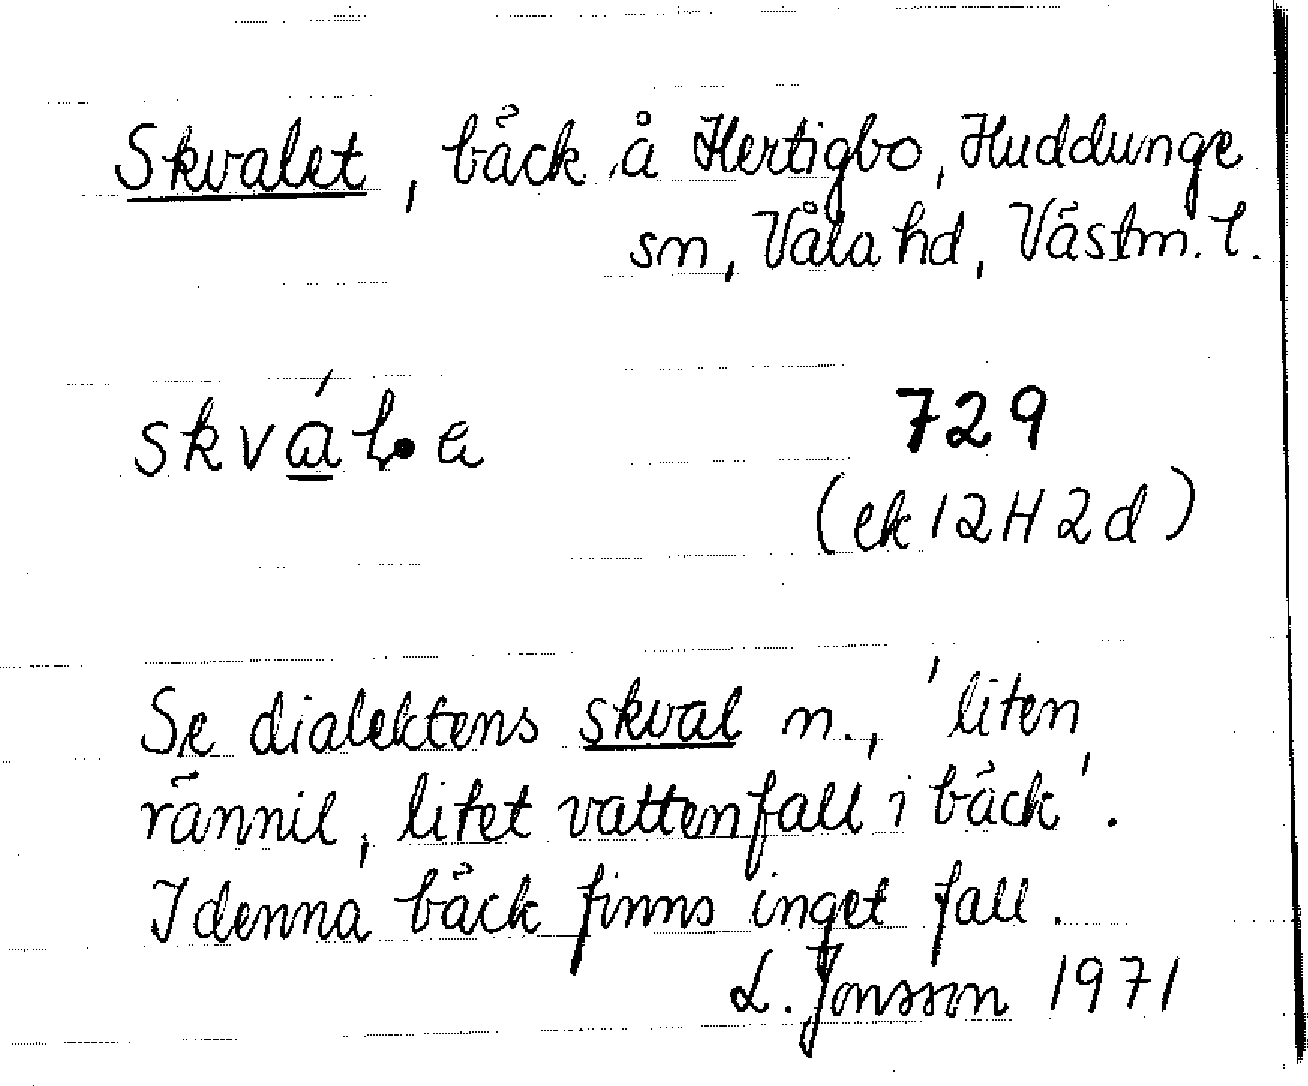 Skvalet, bäck å Hertigbo, Huddunge
sn, Våla hd, Västm. l.
skvál•a 729
(ek 12H2d)
Se dialektens skval n., 'liten
rännil, litet vattenfall i bäck'.
I denna bäck finns inget fall.
L. Jonsson 1971